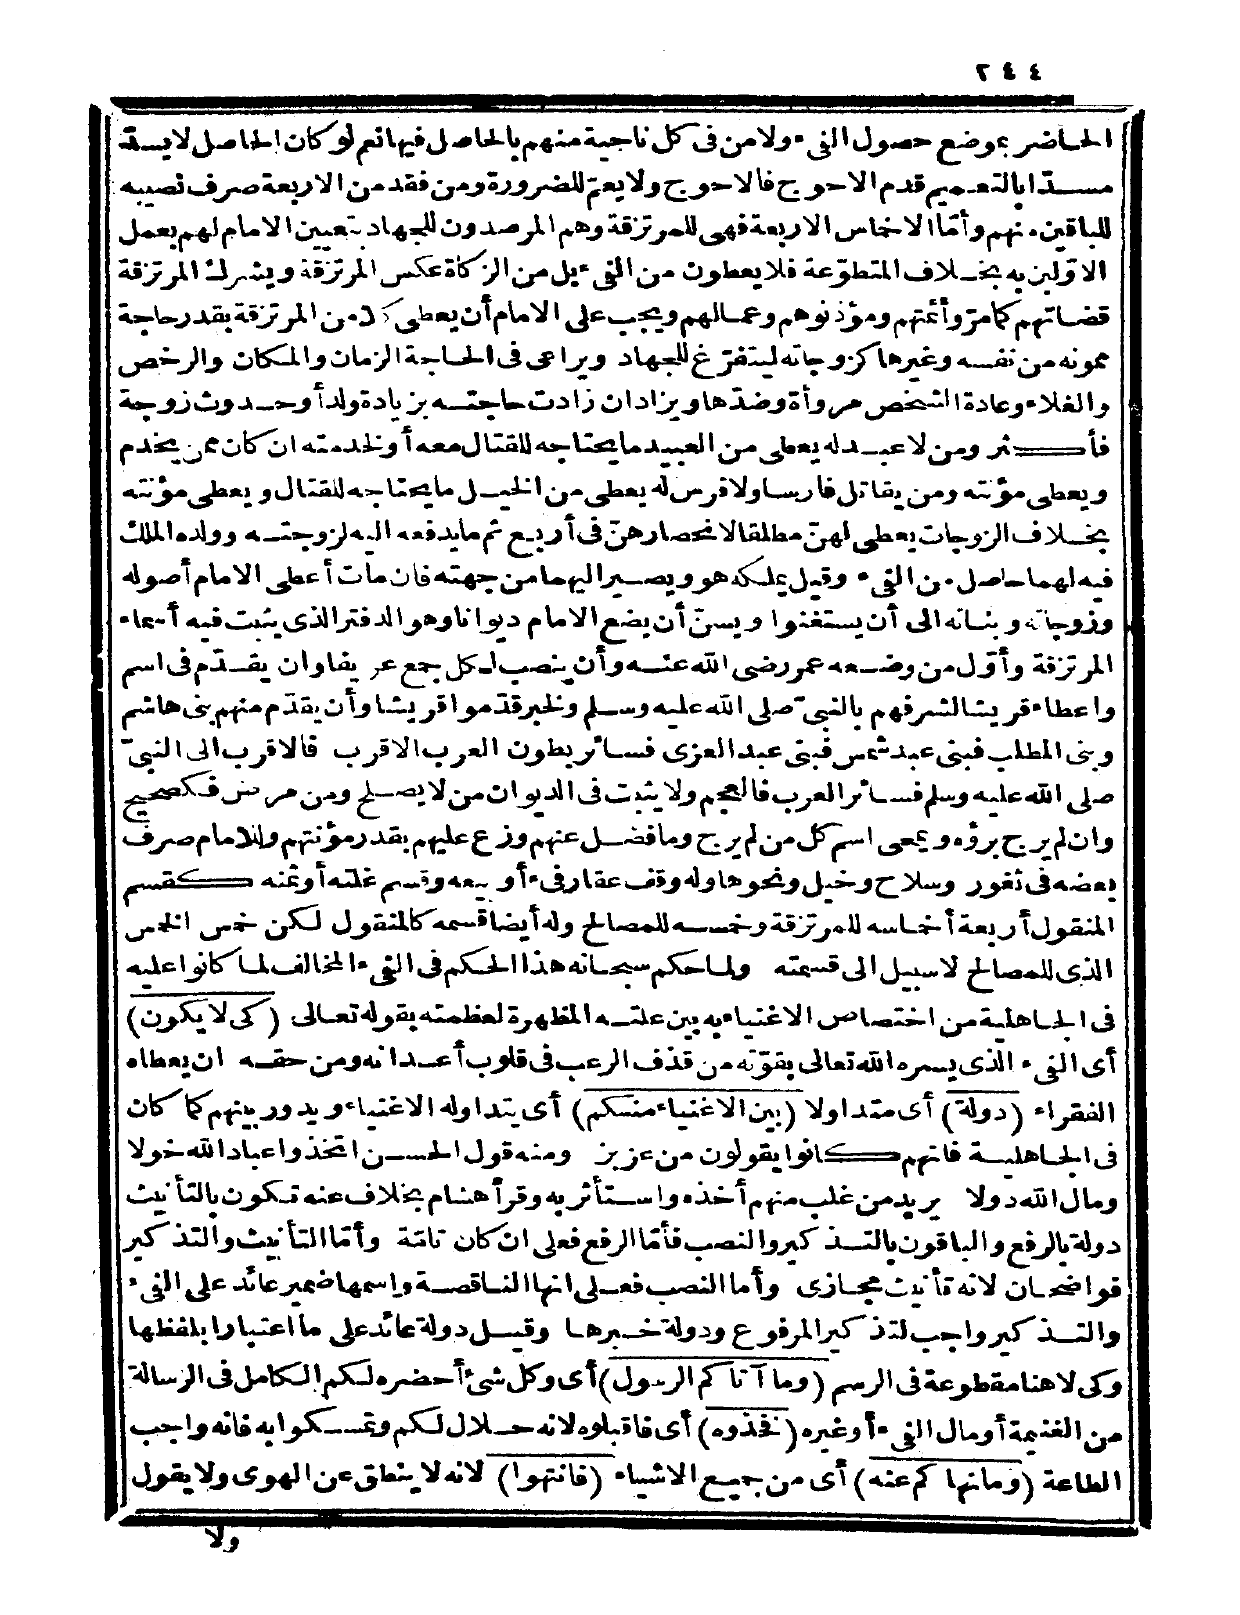 ٢٤٤
الحاضر بموضع حصول الفيء ولا من فى كل ناحية منهم بالحاصل فيها نعم لو كان الحاصل لا يسدّ
مسدّا بالتعميم قدم الاحوج فالاحوج ولا يعمّ للضرورة ومن فقد من الاربعة صرف نصيبه
للباقين منهم وأمّا الاخماس الاربعة فهى للمرتزقة وهم المرصدون للجهاد بتعيين الامام لهم بعمل
الاوّلين به بخلاف المتطوّعة فلا يعطون من الفيء بل من الزكاة عكس المرتزقة ويشرك المرتزقة
قضاتهم كما مرّ وأئمتهم ومؤذنوهم وعمالهم ويجب على الامام أن يعطى كلا من المرتزقة بقدر حاجة
ممونه من نفسه وغيرها كزوجاته ليتفرّغ للجهاد ويراعى فى الحاجة الزمان والمكان والرخص
والغلاء وعادة الشخص مروأة وضدّها ويزاد ان زادت حاجته بزيادة ولد أو حدوث زوجة
فأكثر ومن لا عبد له يعطى من العبيد ما يحتاجه للقتال معه أو لخدمته ان كان ممن يخدم
ويعطى مؤنته ومن يقاتل فارسا ولا فرس له يعطى من الخيل ما يحتاجه للقتال ويعطى مؤنته
بخلاف الزوجات يعطى لهنّ مطلقا لانحصارهنّ فى أربع ثم ما يدفعه اليه لزوجته وولده الملك
فيه لهما حاصل من الفيء وقيل يملكه هو ويصير اليهما من جهته فان مات أعطى الامام أصوله
وزوجاته وبناته الى أن يستغنوا ويسنّ أن يضع الامام ديوانا وهو الدفتر الذى يثبت فيه أسماء
المرتزقة وأوّل من وضعه عمر رضى الله عنه وأن ينصب لكل جمع عريفا وان يقدّم فى اسم
واعطاء قريشا لشرفهم بالنبىّ صلى الله عليه وسلم ولخبر قدّموا قريشا وأن يقدّم منهم بنى هاشم
وبنى المطلب فبنى عبد شمس فبنى عبد العزى فسائر بطون العرب الاقرب فالاقرب الى النبىّ
صلى الله عليه وسلم فسائر العرب فالعجم ولا يثبت فى الديوان من لا يصلح ومن مرض فكصحيح
وان لم يرج برؤه ويمحى اسم كل من لم يرج وما فضل عنهم وزع عليهم بقدر مؤنتهم وللامام صرف
بعضه فى ثغور وسلاح وخيل ونحوها وله وقف عقار فيء أو بيعه وقسم غلته أو ثمنه كقسم
المنقول أربعة أخماسه للمرتزقة وخمسه للمصالح وله أيضا قسمه كالمنقول لكن خمس الخمس
الذى للمصالح لا سبيل الى قسمته ولما حكم سبحانه هذا الحكم فى الفيء المخالف لما كانوا عليه
فى الجاهلية من اختصاص الاغنياء به بين علته المظهرة لعظمته بقوله تعالى (كى لا يكون)
أى الفيء الذى يسره الله تعالى بقوّته من قذف الرعب فى قلوب أعدائه ومن حقه ان يعطاه
الفقراء (دولة) أى متداولا (بين الاغنياء منكم) أى يتداوله الاغنياء ويدور بينهم كما كان
فى الجاهلية فانهم كانوا يقولون من عزبز ومنه قول الحسن اتخذوا عباد الله خولا
ومال الله دولا يريد من غلب منهم أخذه واستأثر به وقرأ هشام بخلاف عنه تكون بالتأنيث
دولة بالرفع والباقون بالتذكير والنصب فأمّا الرفع فعلى ان كان تامّة وأمّا التأنيث والتذكير
فواضحان لانه تأنيث مجازى وأما النصب فعلى انها الناقصة واسمها ضمير عائد على الفيء
والتذكير واجب لتذكير المرفوع ودولة خبرها وقيل دولة عائد على ما اعتبارا بلفظها
وكى لا هنا مقطوعة فى الرسم (وما آتاكم الرسول) أى وكل شئ أحضره لكم الكامل فى الرسالة
من الغنيمة أو مال الفيء أو غيره (فخذوه) أى فاقبلوه لانه حلال لكم وتمسكوا به فانه واجب
الطاعة (وما نهاكم عنه) أى من جميع الاشياء (فانتهوا) لانه لا ينطق عن الهوى ولا يقول
ولا